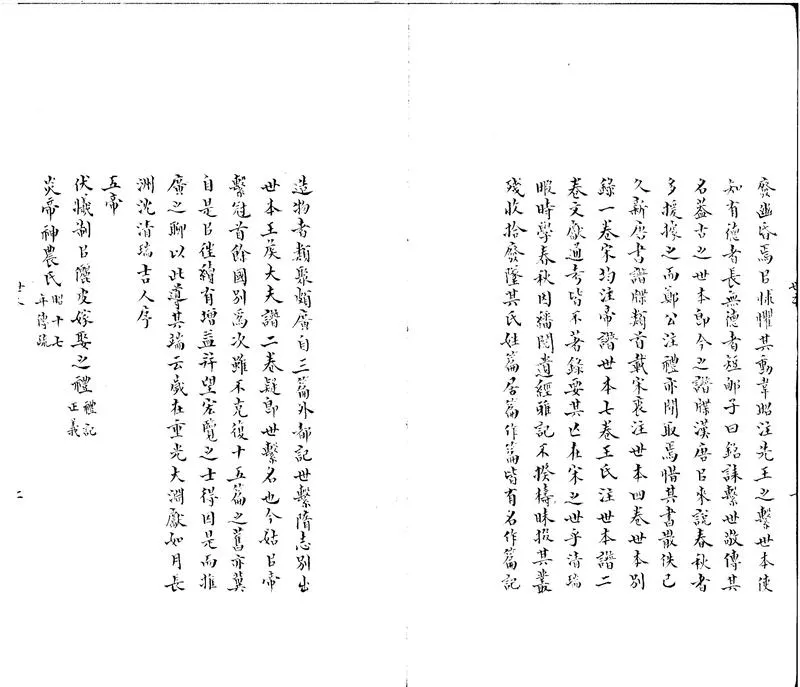 廢幽昏焉㠯怵懼其動韋昭注先王之繫世本使
知有德者長無德者短鄭子曰銘誄繫世敬傳其
名蓋古之世本卽今之譜牒漢唐㠯來說春秋者
多援據之而鄭公注禮亦閒取焉惜其書散佚已
久新唐書譜牒類首載宋衷注世本四卷世本別
錄一卷宋均注帝譜世本七卷王氏注世本譜二
卷文獻通考皆不著錄要其亡在宋之世乎清瑞
暇時學春秋因繙閱遺經雅記不揆檮昧掇其叢
殘收拾廢墜其氏姓篇居篇作篇皆有名作篇記
造物者類聚頗廣自三篇外都記世繫隋志別出
世本王矦大夫譜二卷疑卽世繫名也今姑㠯帝
繫冠首餘國別爲次雖不克復十五篇之舊亦冀
自是㠯徃續有增益幷望宏覽之士得因是而推
廣之聊以此導其端云歲在重光大淵獻如月長
洲沈清瑞吉人序
五帝
伏犧制㠯儷皮嫁娶之禮 禮記正義
炎帝神農氏 昭十七年傳疏